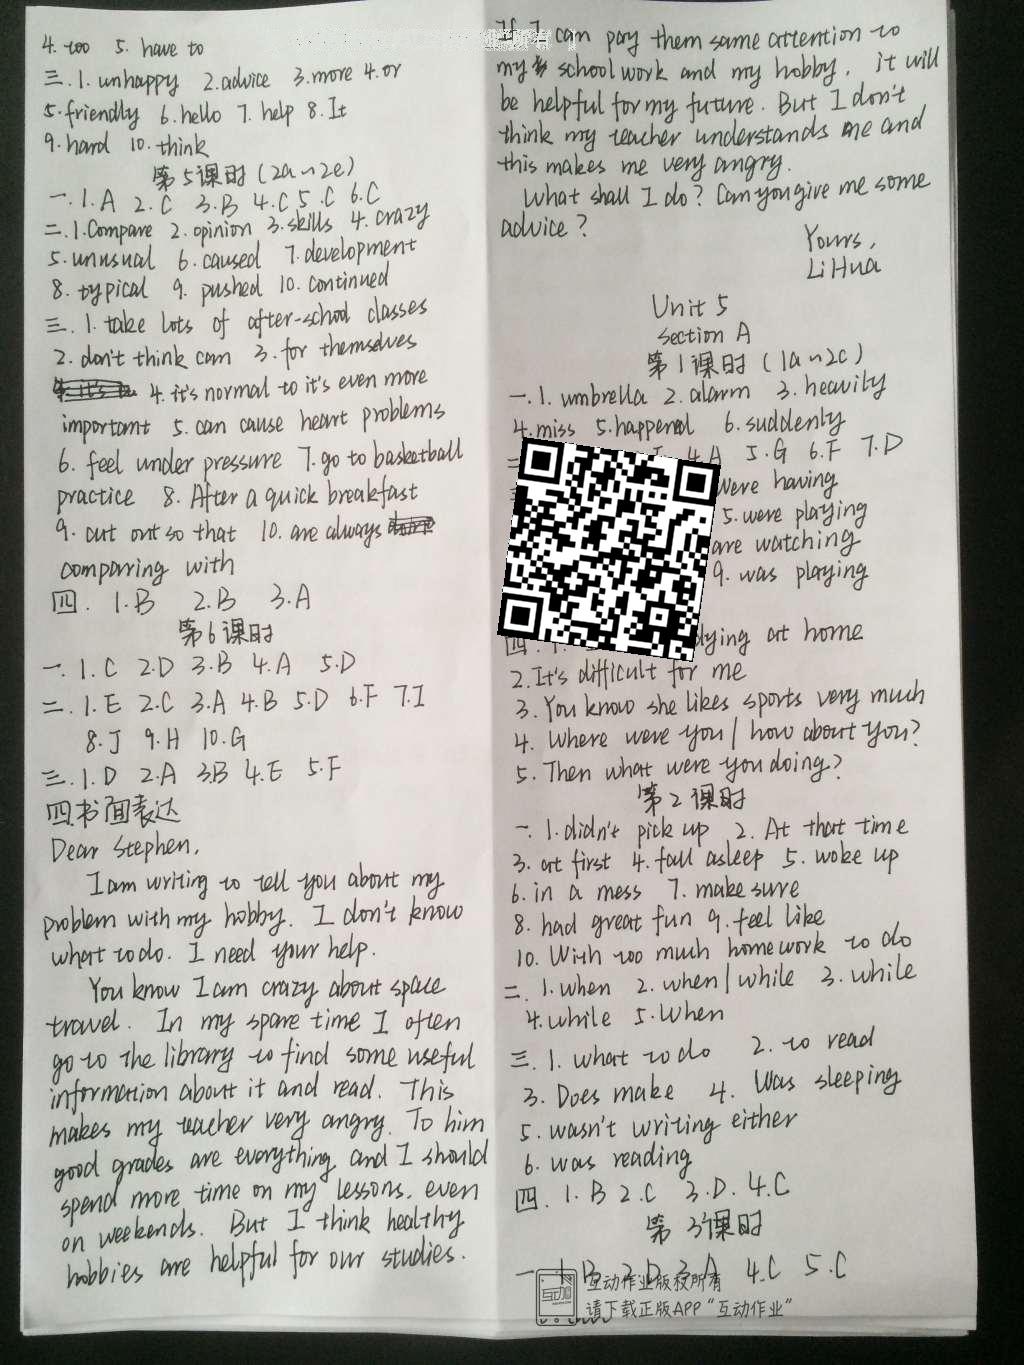 4. too 5. have to
三. 1. unhappy 2. advice 3. more 4. or
5. friendly 6. hello 7. help 8. It
9. hard 10. think
第5课时(2a~2e)
一. 1. A 2. C 3. B 4. C 5. C 6. C
二. 1. Compare 2. opinion 3. skills 4. crazy
5. unusual 6. caused 7. development
8. typical 9. pushed 10. continued
三. 1. take lots of after-school classes
2. don't think can 3. for themselves
4. it's normal to it's even more
important 5. can cause heart problems
6. feel under pressure 7. go to basketball
practice 8. After a quick breakfast
9. cut out so that 10. are always
comparing with
四. 1. B 2. B 3. A
第6课时
一. 1. C 2. D 3. B 4. A 5. D
二. 1. E 2. C 3. A 4. B 5. D 6. F 7. I
8. J 9. H 10. G
三. 1. D 2. A 3. B 4. E 5. F
四. 书面表达
Dear Stephen,
I am writing to tell you about my
problem with my hobby. I don't know
what to do. I need your help.
You know I am crazy about space
travel. In my spare time I often
go to the library to find some useful
information about it and read. This
makes my teacher very angry. To him
good grades are everything, and I should
spend more time on my lessons, even
on weekends. But I think healthy
hobbies are helpful for our studies.
If I can pay them same attention to
my school work and my hobby, it will
be helpful for my future. But I don't
think my teacher understands me and
this makes me very angry.
What shall I do? Can you give me some
advice?
Yours,
Li Hua
Unit 5
Section A
第1课时(1a~2c)
一. 1. umbrella 2. alarm 3. heavily
4. miss 5. happened 6. suddenly
4. A 5. G 6. F 7. D
were having
5. were playing
are watching
9. was playing
四. 1. at home
2. It's difficult for me
3. You know she likes sports very much
4. Where were you / how about you?
5. Then what were you doing?
第2课时
一. 1. didn't pick up 2. At that time
3. at first 4. fall asleep 5. woke up
6. in a mess 7. make sure
8. had great fun 9. feel like
10. With too much homework to do
二. 1. when 2. when / while 3. while
4. while 5. When
三. 1. what to do 2. to read
3. Does make 4. Was sleeping
5. wasn't writing either
6. was reading
四. 1. B 2. C 3. D. 4. C
第3课时
一. 1. B 2. D 3. A 4. C 5. C
互动作业版权所有
请下载正版APP“互动作业”